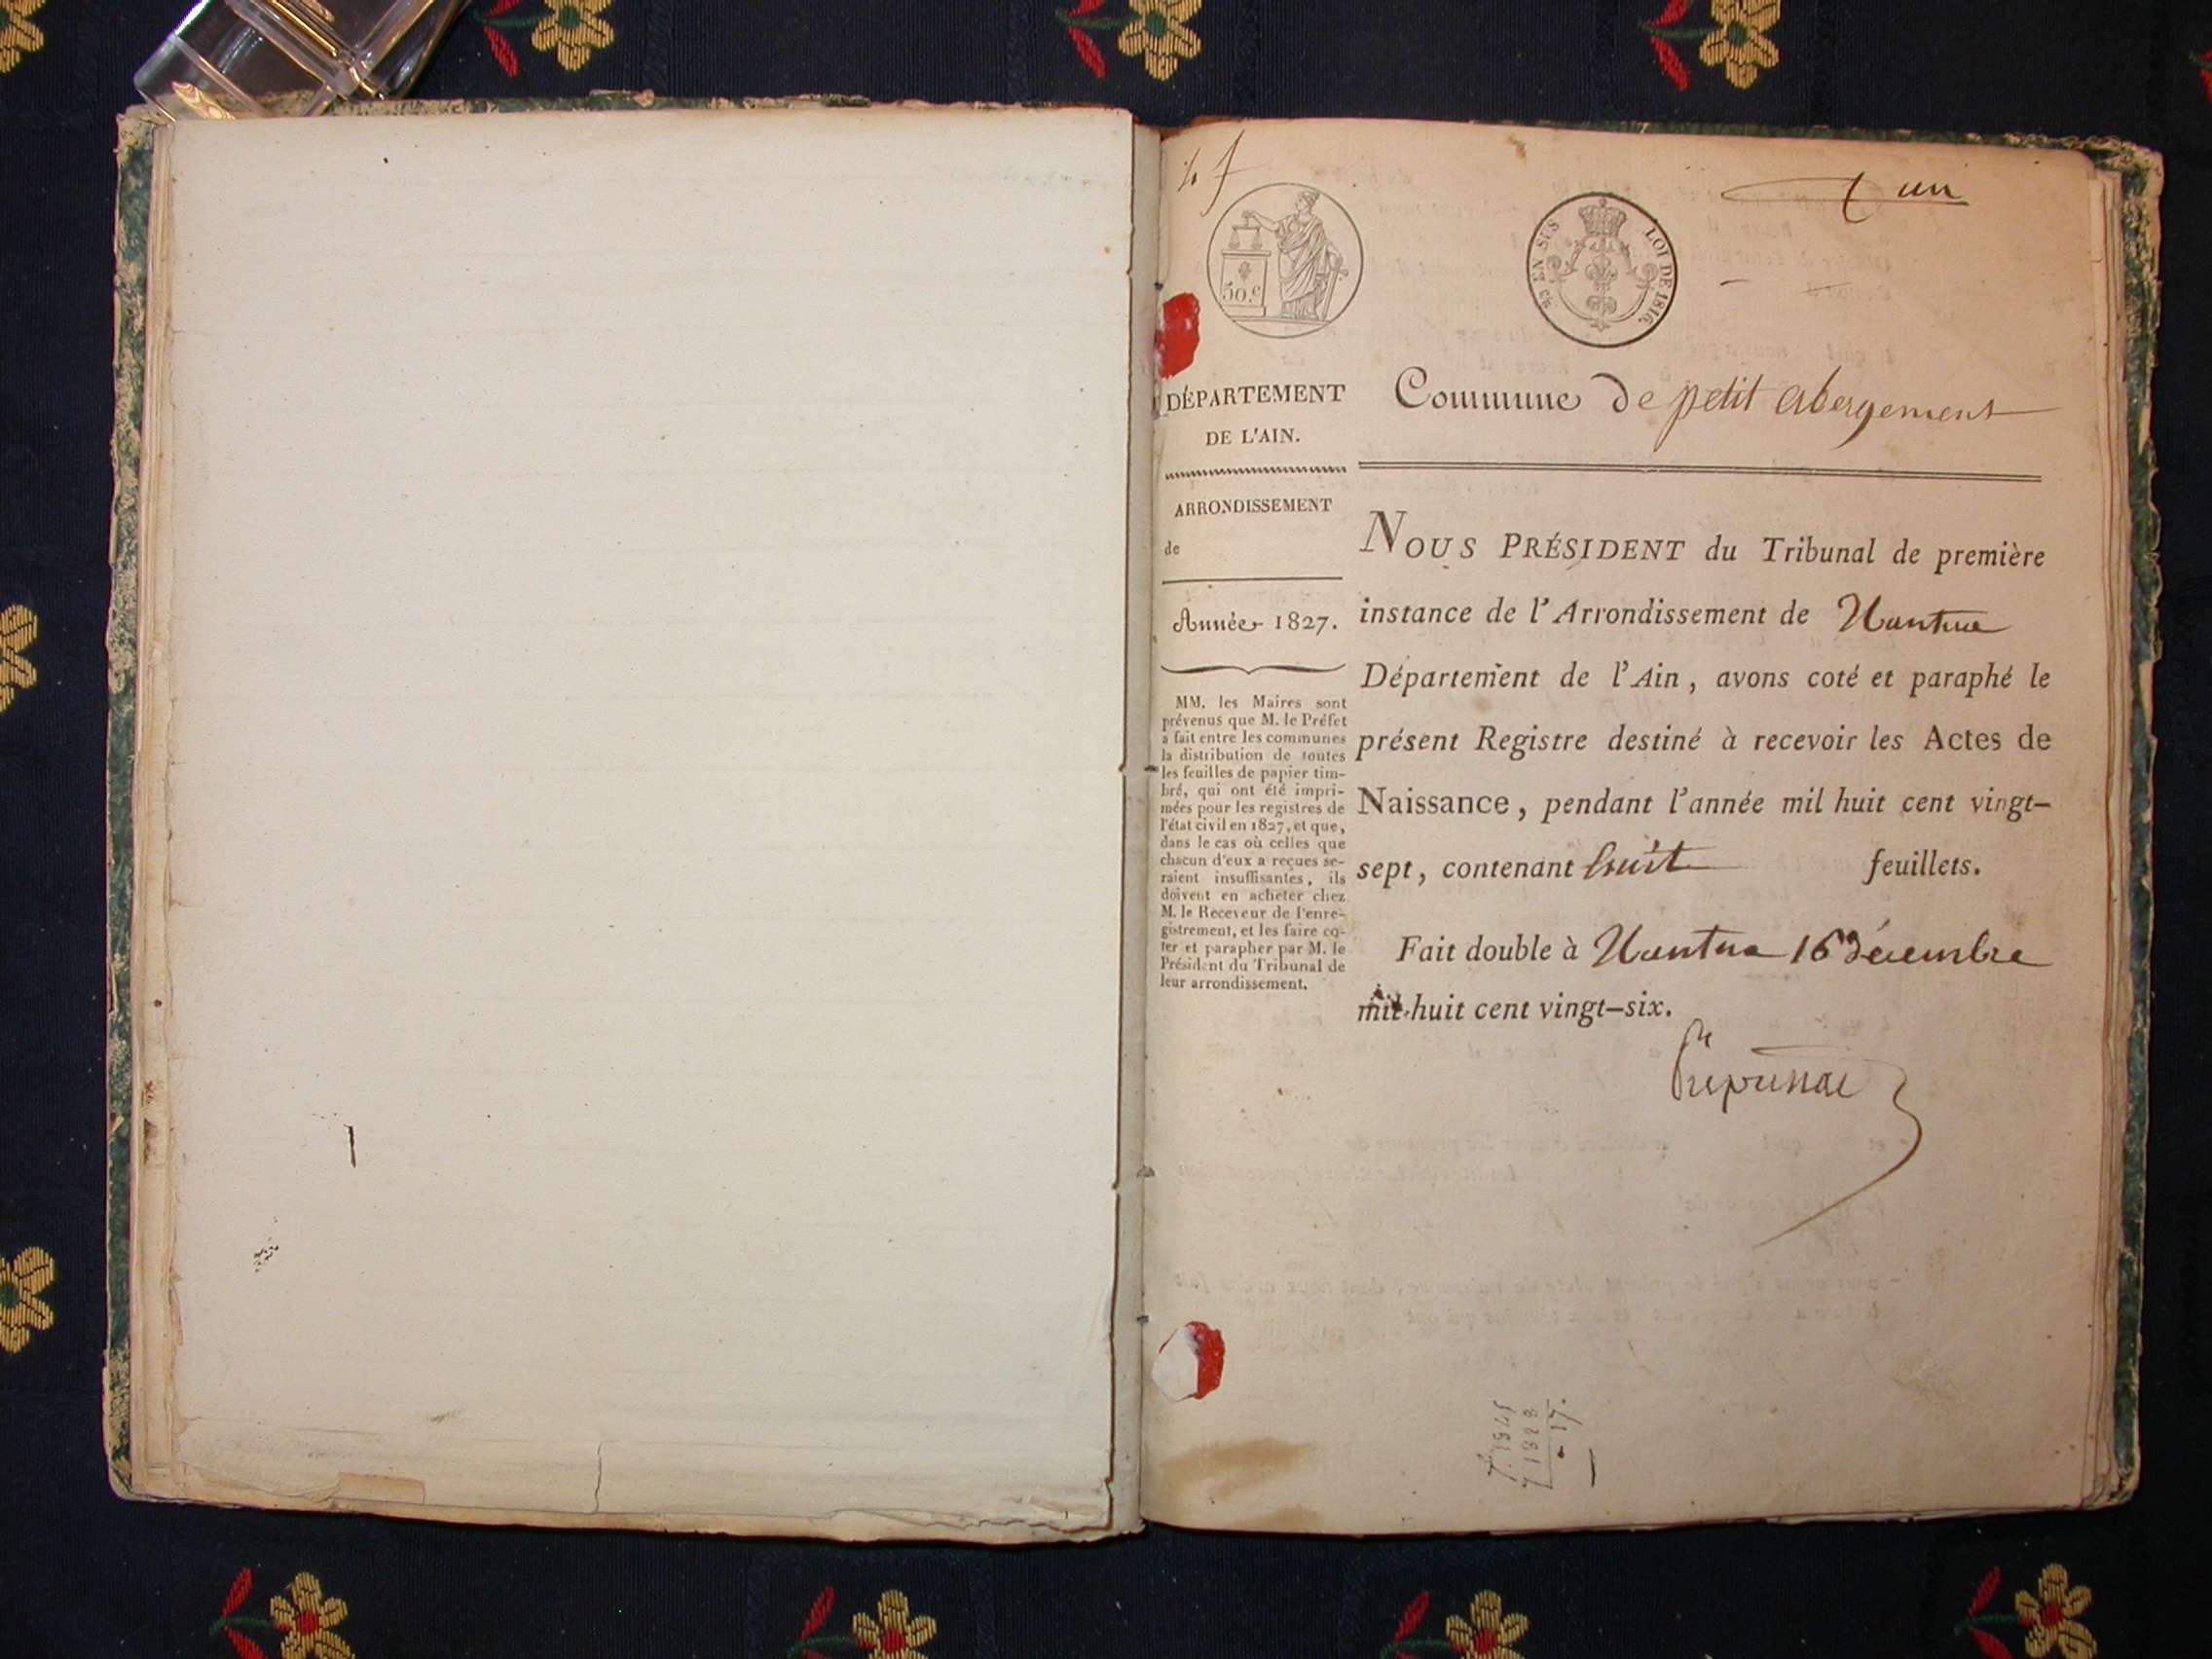 un
50.c
EN SUS
LOI DE 1816.
DÉPARTEMENT
DE L'AIN.
ARRONDISSEMENT
de
Année 1827.
MM. les Maires sont
prévenus que M. le Préfet
a fait entre les communes
la distribution de toutes
les feuilles de papier tim-
bré, qui ont été impri-
mées pour les registres de
l'état civil en 1827, et que,
dans le cas où celles que
chacun d'eux a reçues se-
raient insuffisantes, ils
doivent en acheter chez
M. le Receveur de l'enre-
gistrement, et les faire co-
ter et parapher par M. le
Président du Tribunal de
leur arrondissement.
Commune de petit abergement
NOUS PRÉSIDENT du Tribunal de première
instance de l'Arrondissement de Nantua
Département de l'Ain, avons coté et paraphé le
présent Registre destiné à recevoir les Actes de
Naissance, pendant l'année mil huit cent vingt-
sept, contenant huit feuillets.
Fait double à Nantua 16 décembre
mil huit cent vingt-six.
1828
17.